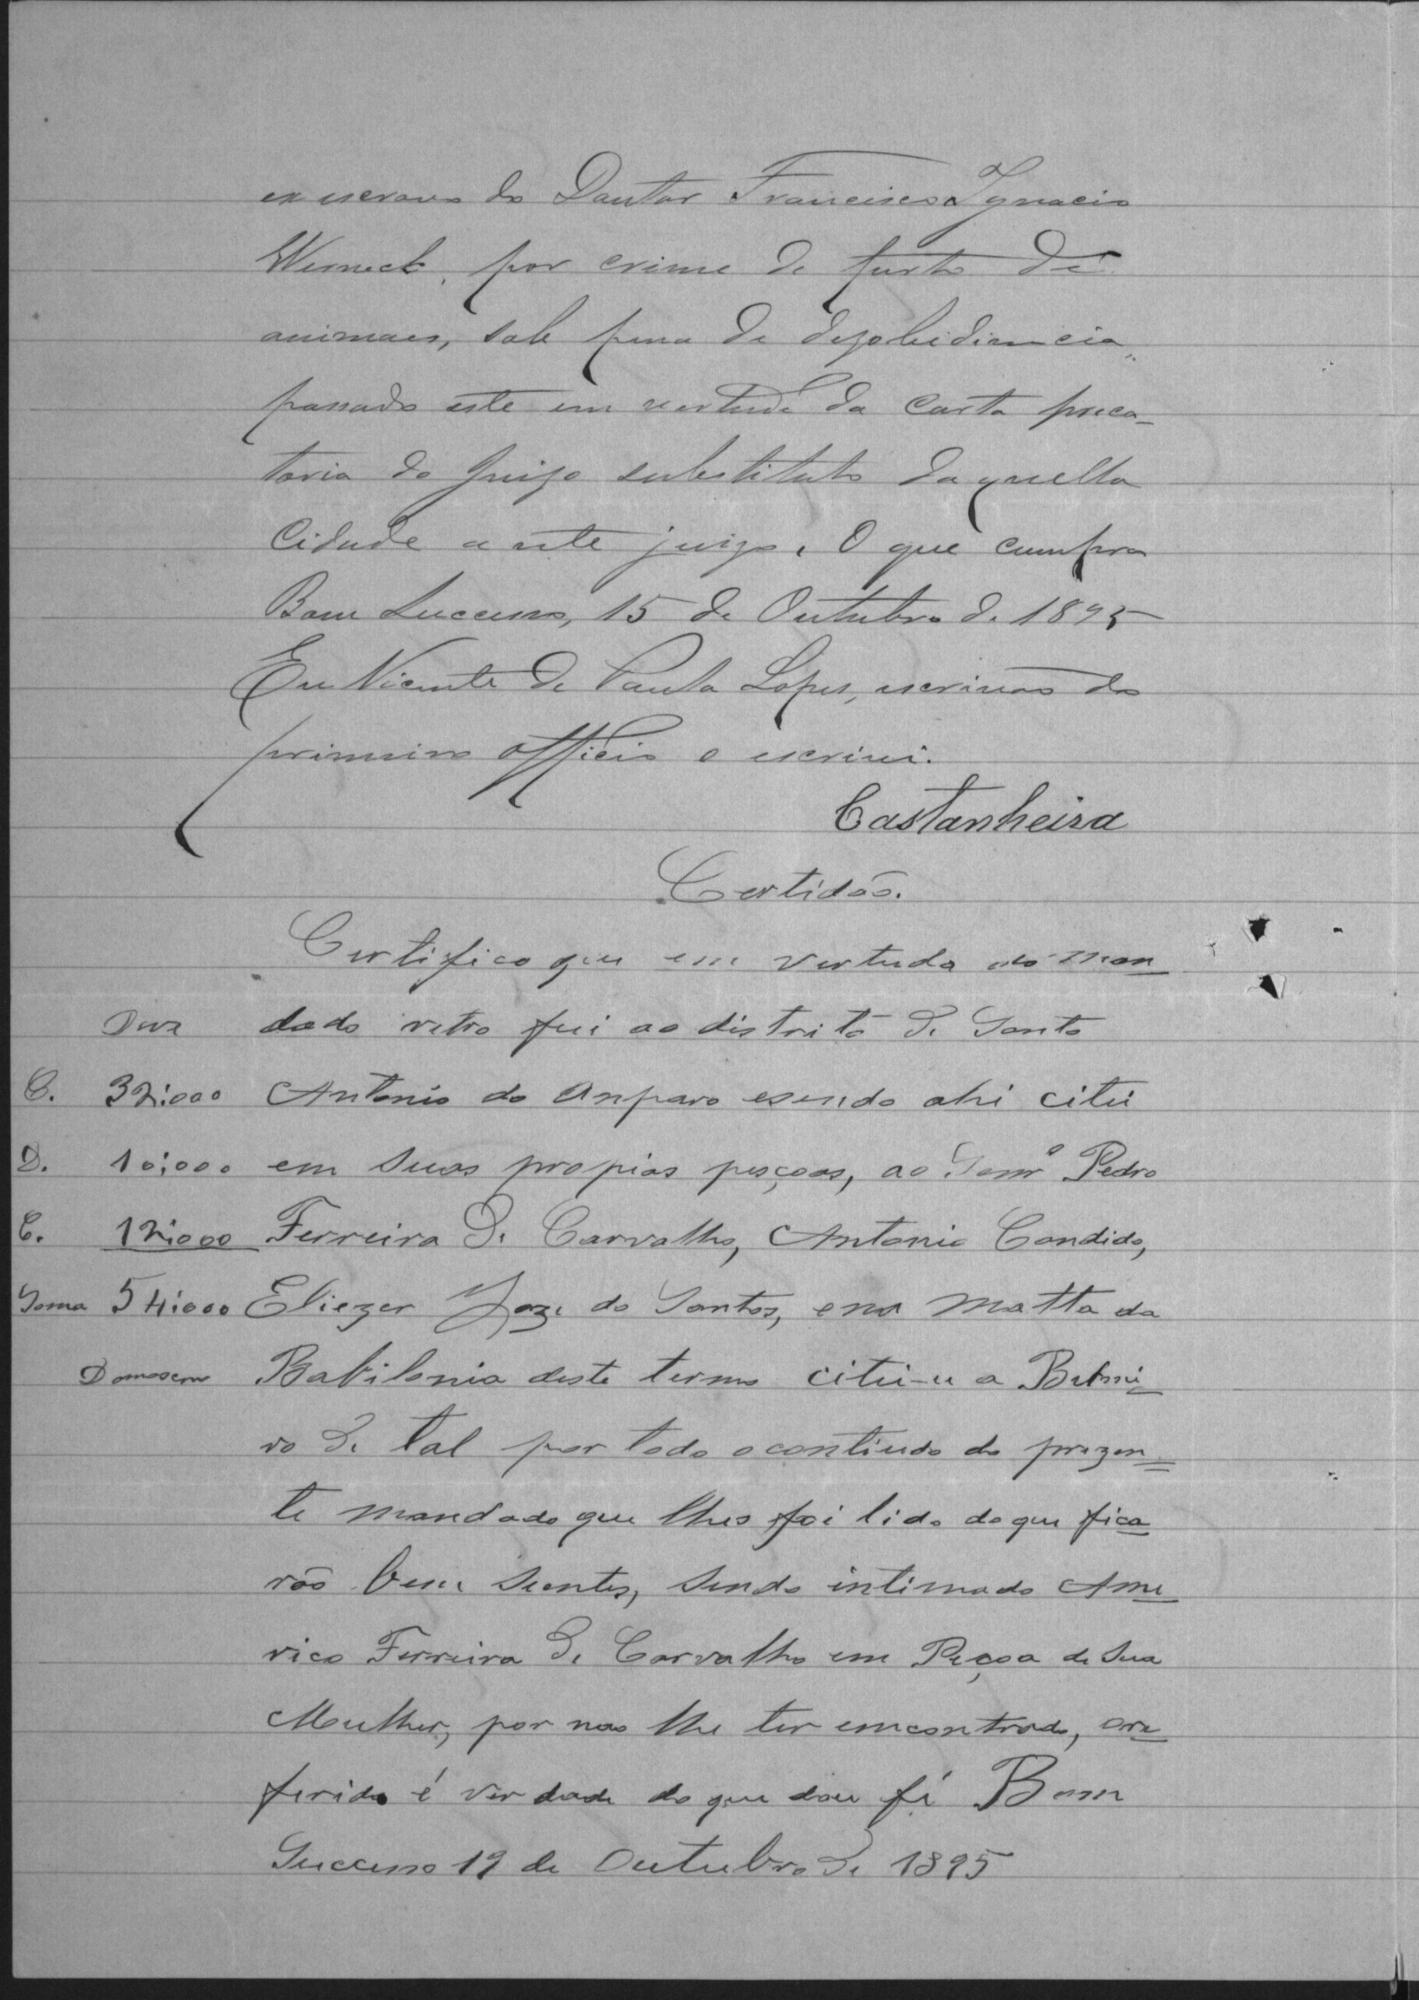 ex escravo do Doutor Francisco Ignacio
Werneck, por crime de furto de
animaes, sob pena de dezobidiencia,
passado este em vertude da carta preca-
toria do Juizo substituto daquella
Cidade a este juizo. O que cumpra
Bom Successo, 15 de Outubro de 1895
Eu Vicente de Paula Lopes, escrivão do
primeiro officio o escrivi.
Castanheira
Certidão.
Certifico que em vertude do man
dado retro fui ao distrito de Santo
C. 32:000 Antonio do Amparo esendo ahi citei
D. 10:000 em suas propias peçoas, ao Senrº Pedro
C. 12:000 Ferreira de Carvalho, Antonio Candido,
Soma 54:000 Eliezer Joze do Santos, ena Matta da
Damasceno Babilonia deste termo citei-u a Belmi
ro de tal por todo o contiudo do prezen
te mandado que lhes foi lido do que fica
rão bem sientes, sendo intimado Ame
rico Ferreira de Carvalho em Peçoa de sua
Mulher, por nao lhe ter emcontrado, ore
ferido é verdade do que dou fé Bom
Successo 19 de Outubro de 1895